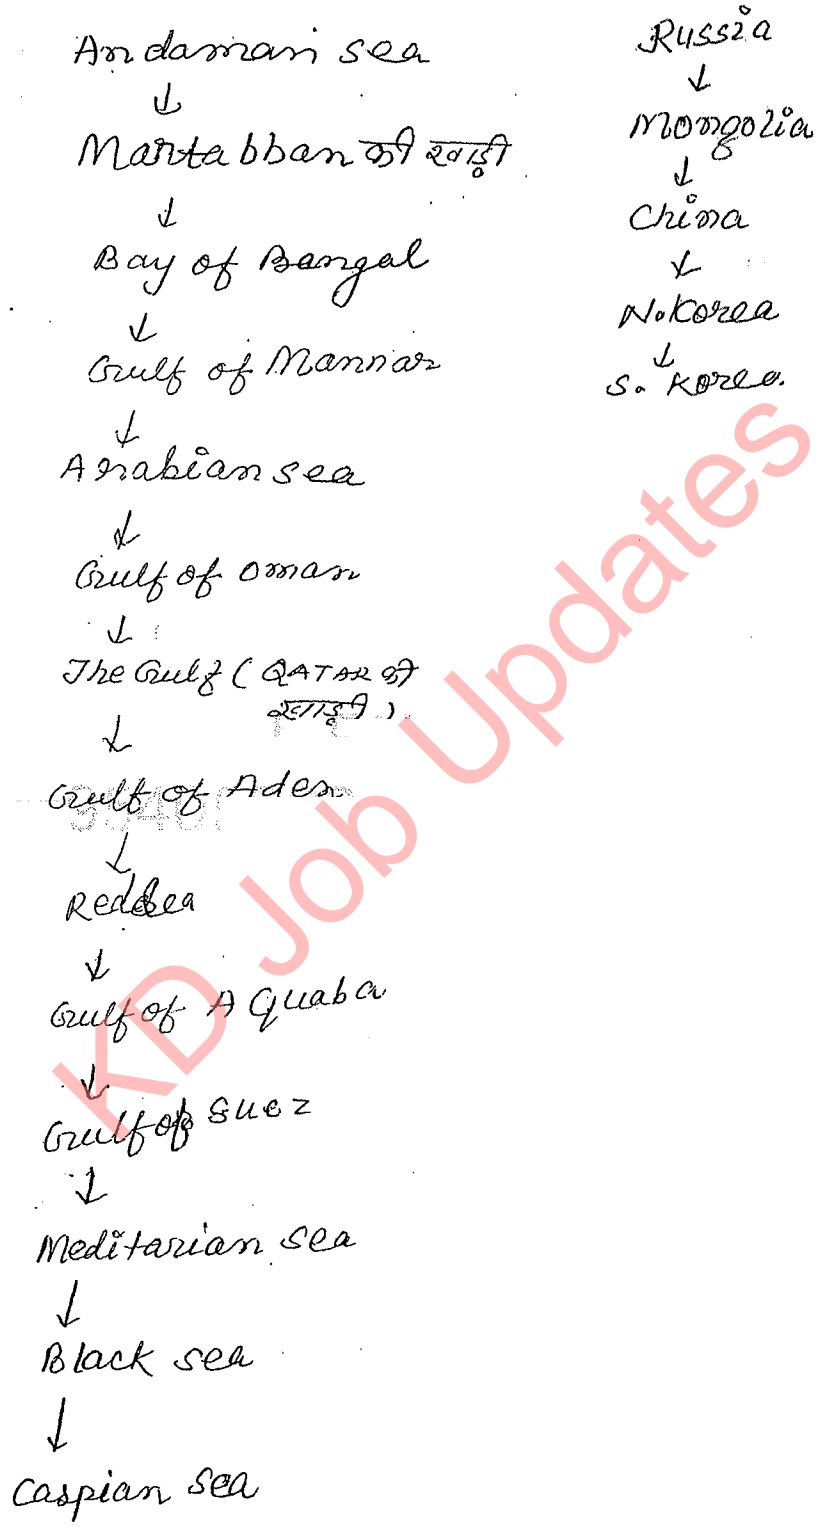 Andaman sea
↓
Martabban की खाड़ी
↓
Bay of Bangal
↓
Gulf of Mannar
↓
Arabian sea
↓
Gulf of oman
↓
The Gulf ( QATAR की
खाड़ी )
↓
Gulf of Aden
↓
Red Sea
↓
Gulf of A Quaba
↓
Gulf of Suez
↓
Meditarian Sea
↓
Black sea
↓
Caspian Sea
Russia
↓
Mongolia
↓
China
↓
N. Korea
↓
S. Korea.
KD Job Updates